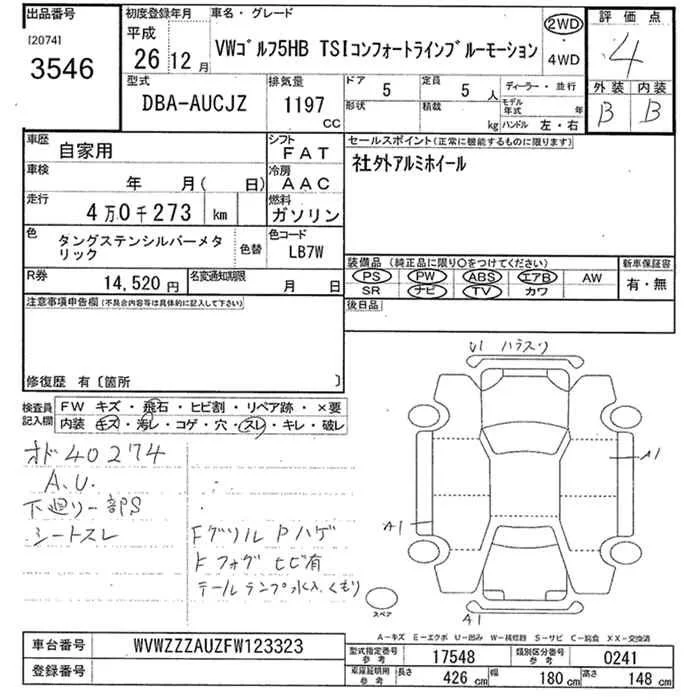 出品番号
[2074]
3546
初度登録年月
平成
26 12 月
車名・グレード
VWゴルフ5HB TSIコンフォートラインブルーモーション
2WD
・
4WD
評価点
4
外装 内装
B B
型式
DBA-AUCJZ
排気量
1197
CC
ドア
5
形状
定員
5 人
積載
kg
ディーラー・並行
モデル年式 年
ハンドル 左・右
車歴
自家用
シフト
FAT
車検
年 月( 日)
冷房
AAC
走行
4万0千273 km
燃料
ガソリン
色
タングステンシルバーメタ
リック
色替
色コード
LB7W
R券
14,520 円
名変通知期限
月 日
セールスポイント(正常に機能するものに限ります)
社外アルミホイール
装備品(純正品に限り○をつけてください)
PS PW ABS エアB AW
SR ナビ TV カワ
新車保証書
有・無
後日品
注意事項申告欄(不具合内容等は具体的に記入して下さい)
修復歴 有〔箇所 〕
検査員
記入欄
FW キズ・飛石・ヒビ割・リペア跡・×要
内装 キズ・汚レ・コゲ・穴・スレ・キレ・破レ
オド40274
A.U.
下廻り一部S
シートスレ
Fグリル Pハゲ
Fフォグ ヒビ有
テールランプ水入 くもり
U1
A1
A1
A1
スペア
A-キズ E-エクボ U-凹み W-補修跡 S-サビ C-腐食 XX-交換済
車台番号
WVWZZZAUZFW123323
登録番号
型式指定番号
参考
17548
類別区分番号
参考
0241
車庫証明用
参考
長さ 426 cm
幅 180 cm
高さ 148 cm